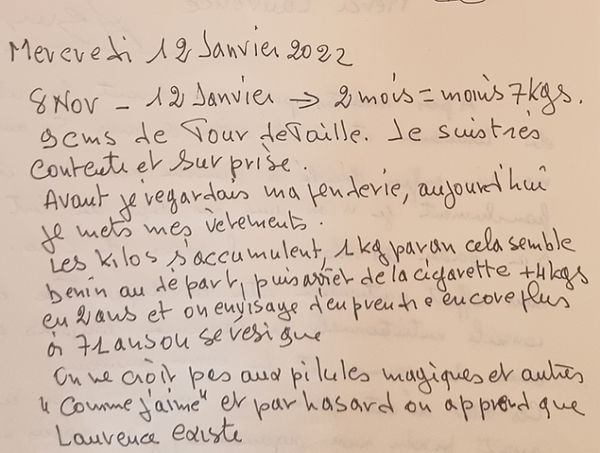 Mercredi 12 Janvier 2022
8 Nov - 12 Janvier → 2 mois = moins 7kgs.
9cms de Tour de Taille. Je suis très
contente et surprise.
Avant je regardais ma penderie, aujourd'hui
je mets mes vêtements.
Les kilos s'accumulent, 1kg par an cela semble
benin au départ, puis arrêt de la cigarette +4kgs
en 2 ans et on envisage d'en prendre encore plus
à 71 ans on se résigne
On ne croit pas aux pilules magiques et autres
"Comme j'aime" et par hasard on apprend que
Laurence existe